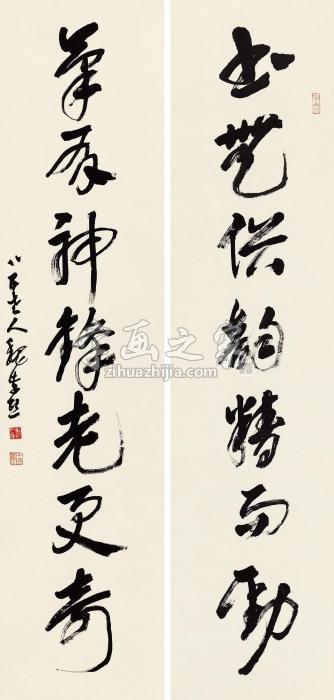 书無俗韵精而勁
筆有神鋒老更奇
八十老人魏启后
画之家
zihuazhijia.com